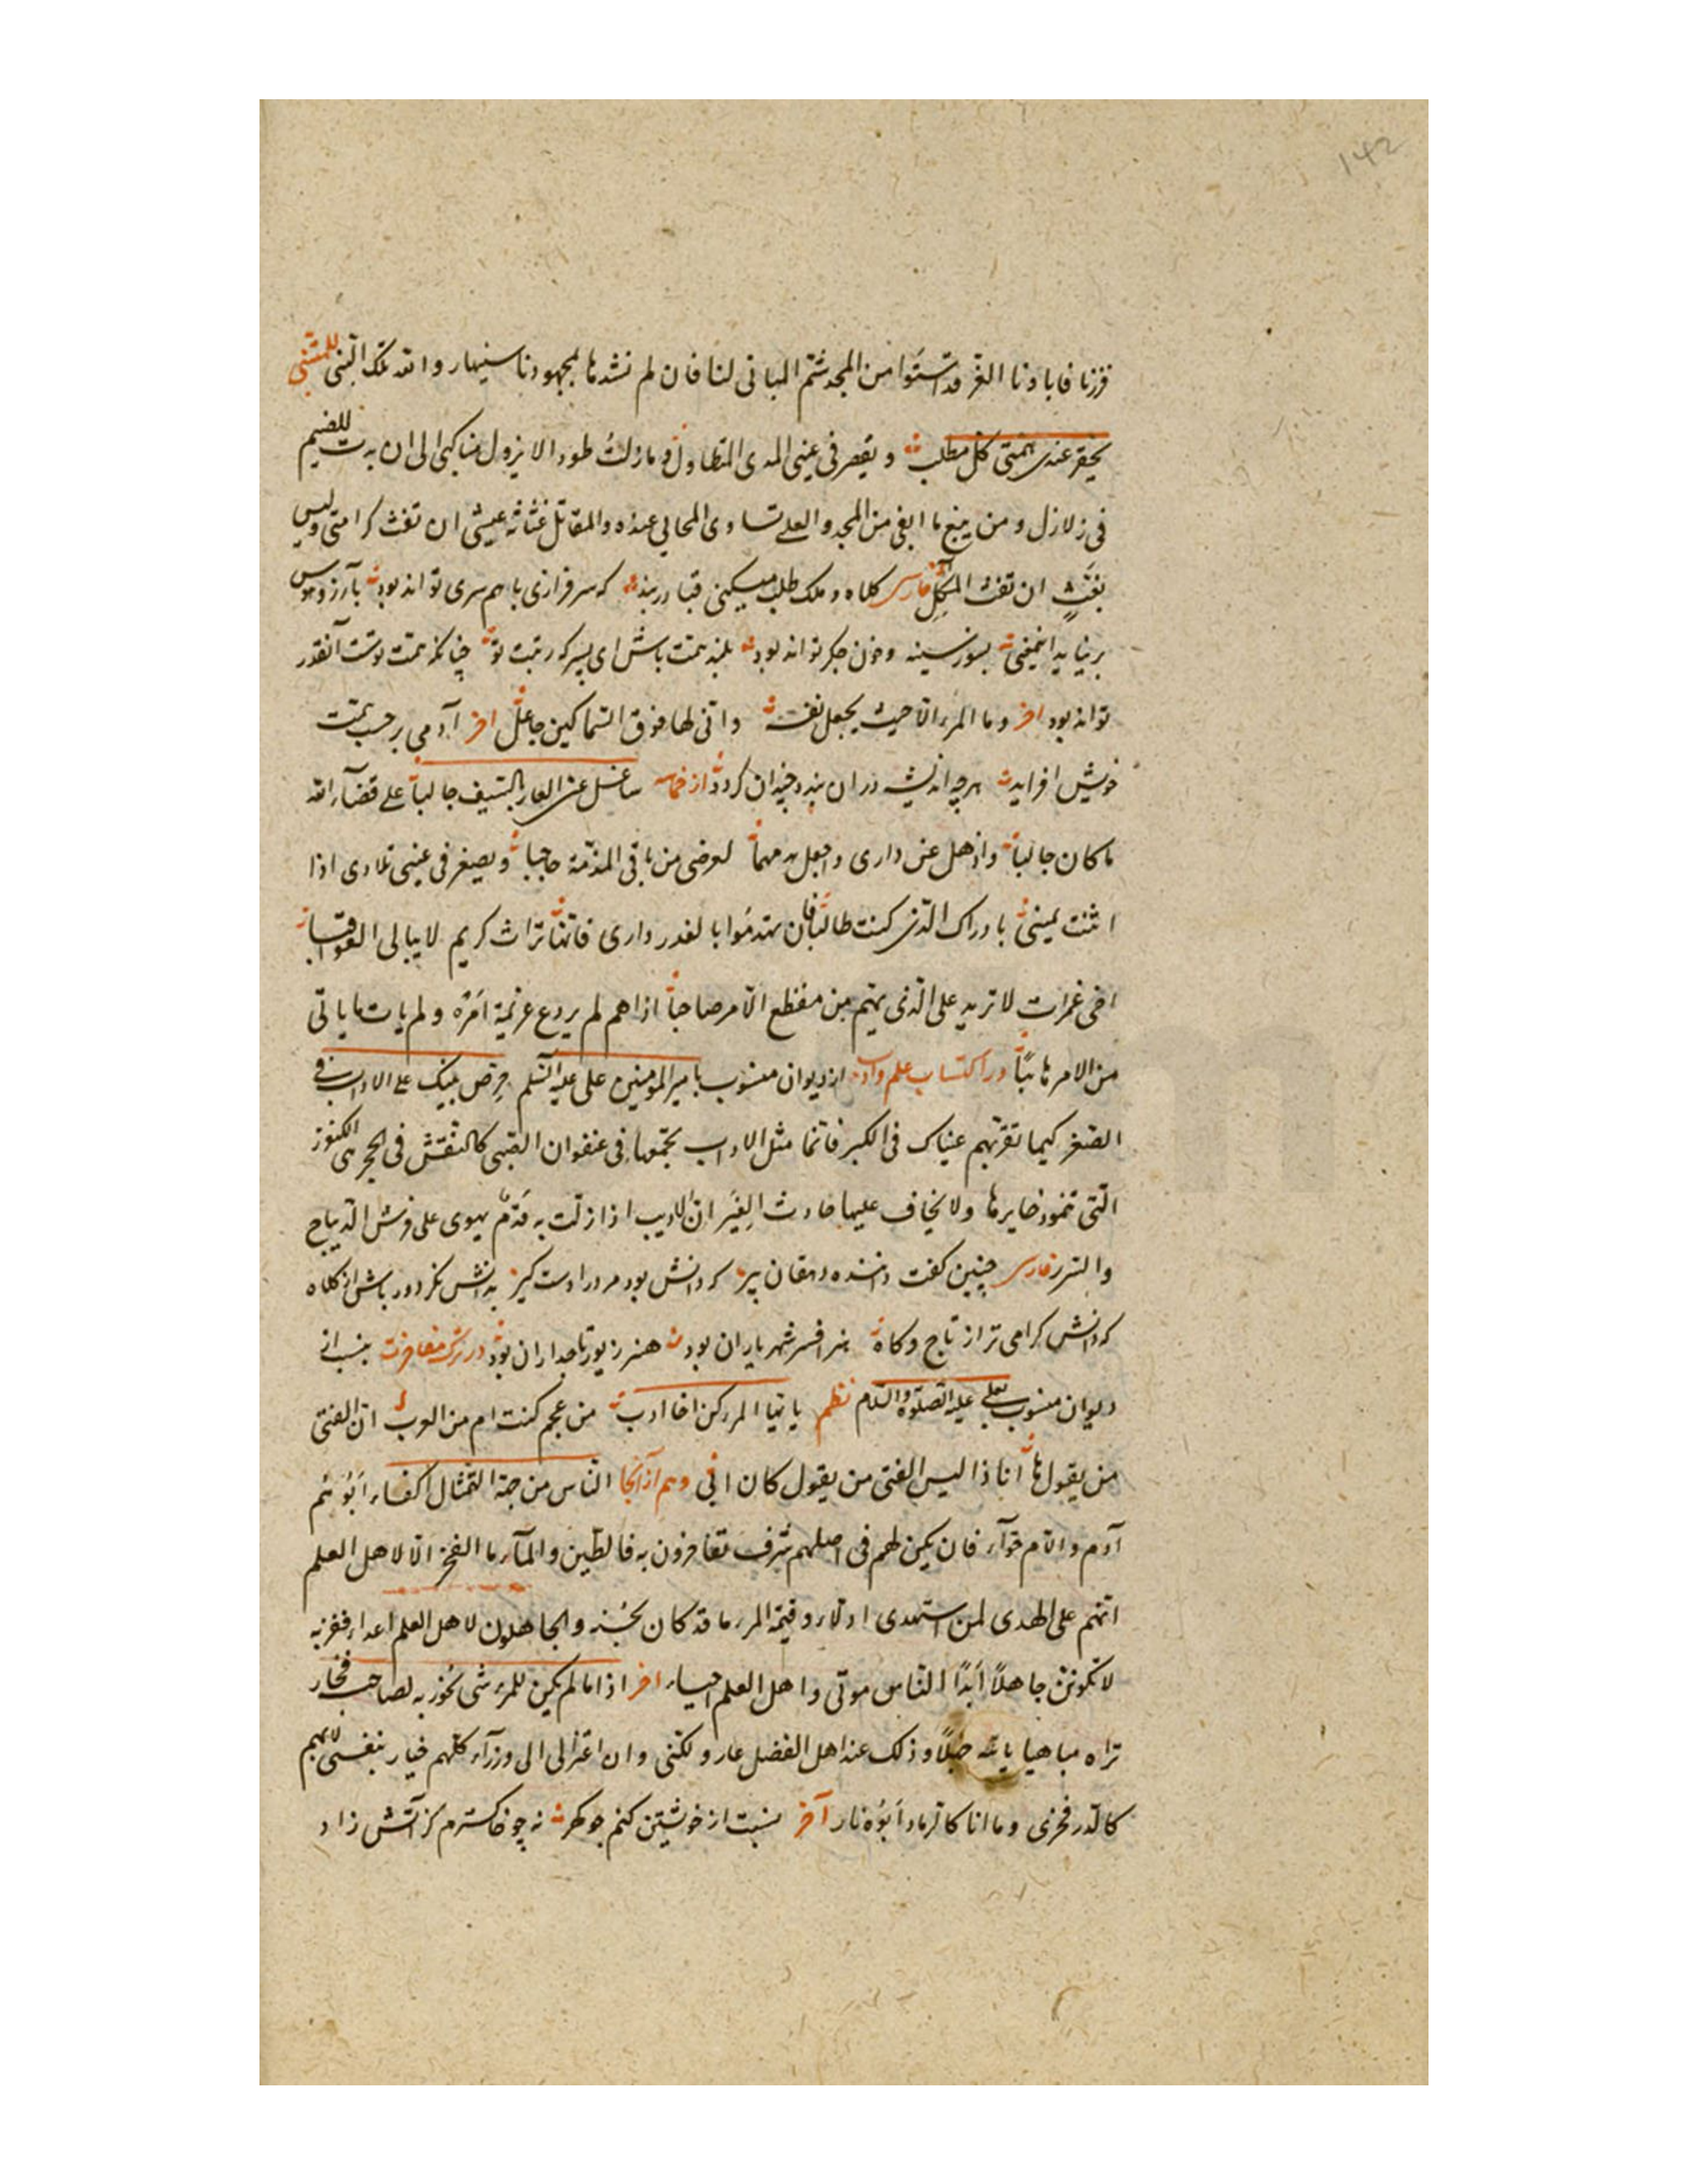 ۱۴۲
فررنا فابادنا الغر قد اسّسَوا من المجد شمّ المبانی لنا فان لم نشدها بمجهودنا سینهار و الله تلک البُنی للمتنبی
یحقر عندی همّتی کلّ مطلب و یقصر فی عینی المدی المتطاول و مازلتُ طودا لا یزول مناکبی الی ان بدت للضیم
فی زلازل و من یبغ ما ابغی من المجد و العلی تساوی المحالی عنده و المقاتل غثاثة عیشی ان تغث کرامتی و لیس
بغَثٍّ ان تغث المآکل فارسی کلاه و ملک طلب میکنی قبا دربند که سرفرازی با هم سری تواند بود بآرزو و هوس
برنیاید این معنی بسوز سینه و خون جگر تواند بود بلند همت باش ای پسر که رتبت تو چنانکه همت توست آنقدر
تواند بود اخر و ما المرء الا حیث یجعل نفسه و انی لها فوق السّماکین جاعل اخر آدمی بر حسب همت
خویش افزاید هر چه اندیشه در ان بندد چندان گردد از حماسه ساغسل عنی العار بالسّیف جالباً علی قضآء الله
ما کان جالباً و اذهل عن داری و اجعل هدمها لعرضی من باقی المذمّة حاجبا و یصغر فی عینی تلادی اذا
انثنت یمینی بادراک الّذی کنت طالبًا فان تهدمُوا بالغدر داری فانّها تراث کریم لا یبالی العواقبا
اخی غمرات لا ترید علی الّذی یهمّ من مفظع الامر صاحباً اذا هم لم یردع عزیمة امره و لم یات ما یاتی
من الامر هائبًا در اکتساب علم و ادب از دیوان منسوب بامیر المؤمنین علی علیه السّلم حرّص بنیک علی الاداب فی
الصّغر کیما تقرّ بهم عیناک فی الکبر فانّما مثل الاداب تجمعها فی عنفوان الصّبی کالنّقش فی الحجر هی الکنوز
الّتی تنمو ذخایرها و لا یخاف علیها حادث الِغیَر انّ الادیب اذا زلّت به قَدمٌ یهوی علی فرش الدّیباج
و السّرر فارسی چنین گفت داننده دهقان پیر که دانش بود مرد را دست گیر بدانش نگر دور باش از کلاه
که دانش گرامی تر از تاج و گاه هنر افسر شهریاران بود هنر زیور تاجداران بود در ترک مفاخرت بنسب از
دیوان منسوب بعلی علیه الصّلوة و السّلام نظم یا ایها المرء کن اخا ادب من عجم کنت ام من العرب انّ الفتی
من یقول ها انا ذا لیس الفتی من یقول کان ابی و هم از آنجا النّاس من جهة التّمثال اکفاء ابُوهُم
آدم و الام حوّآء فان یکن لهم فی اصلهم شرف تفاخرون به فالطّین و المآء ما الفخر الّا لاهل العلم
انّهم علی الهدی لمن استهدی ادلاء و قیمة المرء ما قد کان یُحسنه و الجاهلون لاهل العلم اعداء ففز به
لا تکونن جاهلًا ابدًا النّاس موتی و اهل العلم احیاء اخر اذا ما لم یکن للمرء شئ یحوز به لصاحب فخار
تراه مباهیا بابیه جهلًا و ذلک عند اهل الفضل عار و لکنی و ان اعتزا لی الی وزرآء کلّهم خیار بنفسی لا بهم
کالدّر فخری و ما انا کالرماد ابُوه نار آخر نسبت از خویشتن کنم چو گهر نه چو خاکسترم کز آتش زاد